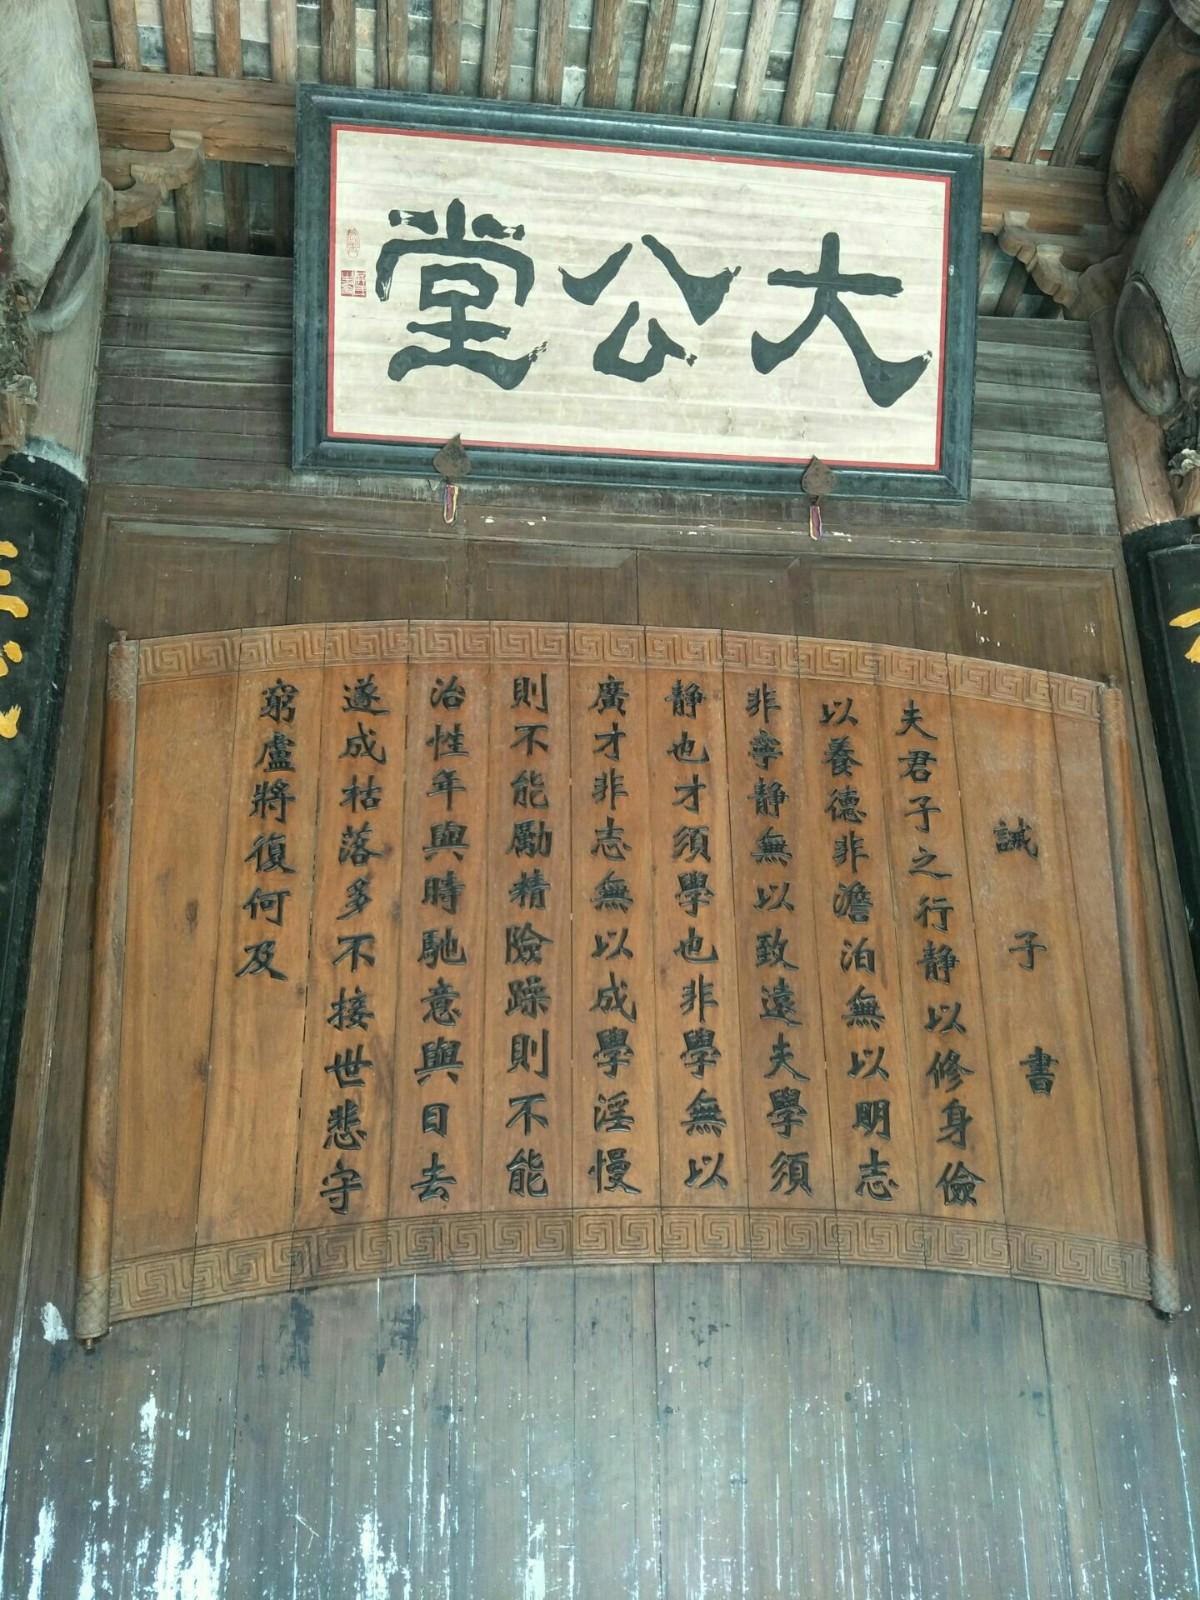 大公堂
誡子書
夫君子之行静以修身儉
以養德非澹泊無以明志
非寧静無以致遠夫學須
静也才須學也非學無以
廣才非志無以成學淫慢
則不能勵精險躁則不能
治性年與時馳意與日去
遂成枯落多不接世悲守
窮盧將復何及